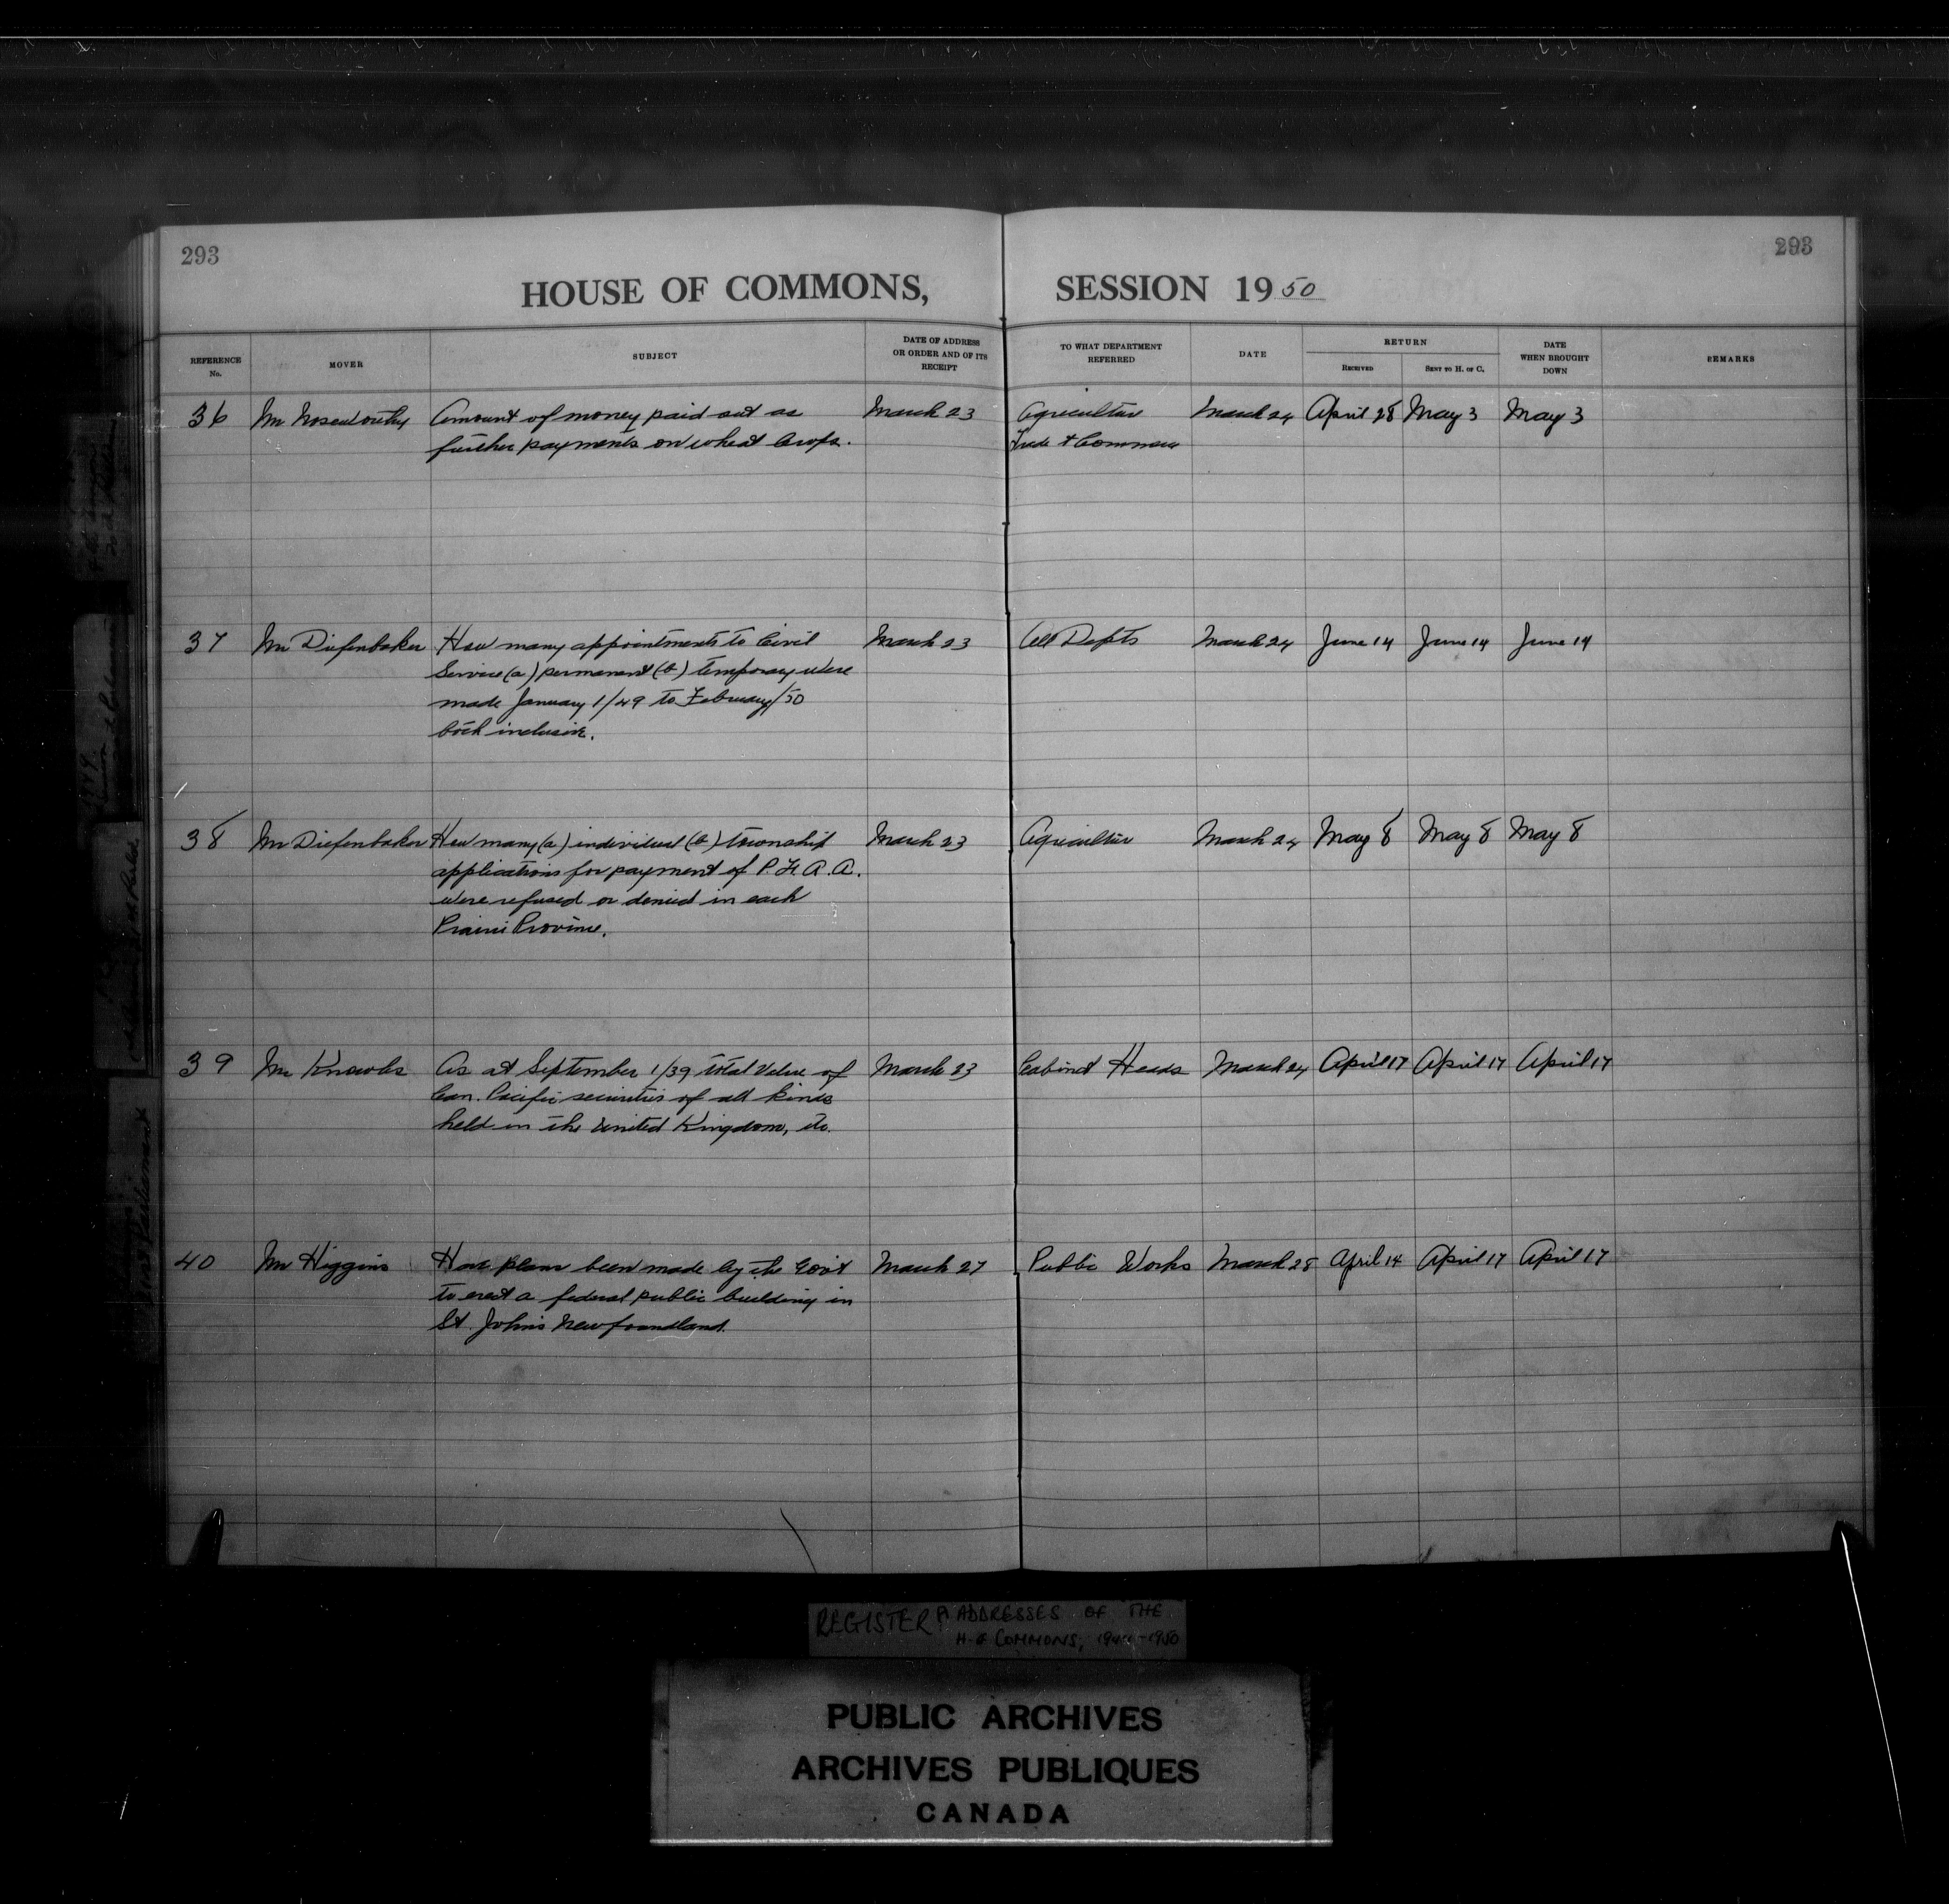 293
293
HOUSE OF COMMONS, SESSION 1950
REFERENCE No. MOVER SUBJECT DATE OF ADDRESS OR ORDER AND OF ITS RECEIPT TO WHAT DEPARTMENT REFERRED DATE RETURN RECEIVED SENT TO H. OF C. DATE WHEN BROUGHT DOWN REMARKS
36 Mr Noseworthy Amount of money paid out as March 23 Agriculture March 24 April 28 May 3 May 3
further payments on wheat crops. Trade & Commerce
37 Mr Diefenbaker How many appointments to Civil March 23 All Depts March 24 June 14 June 14 June 14
Service (a) permanent (b) temporary were
made January 1/49 to February/50
both inclusive.
38 Mr Diefenbaker How many (a) individual (b) township March 23 Agriculture March 24 May 8 May 8 May 8
applications for payment of P.F.A.A.
were refused or denied in each
Prairie Province.
39 Mr Knowles As at September 1/39 total value of March 23 Cabinet Heads March 24 April 17 April 17 April 17
Can. Pacific securities of all kinds
held in the United Kingdom, etc.
40 Mr Higgins Have plans been made by the Gov't March 27 Public Works March 28 April 14 April 17 April 17
to erect a federal public building in
St. John's Newfoundland.
REGISTER ADDRESSES OF THE
H. of COMMONS, 1950
PUBLIC ARCHIVES
ARCHIVES PUBLIQUES
CANADA